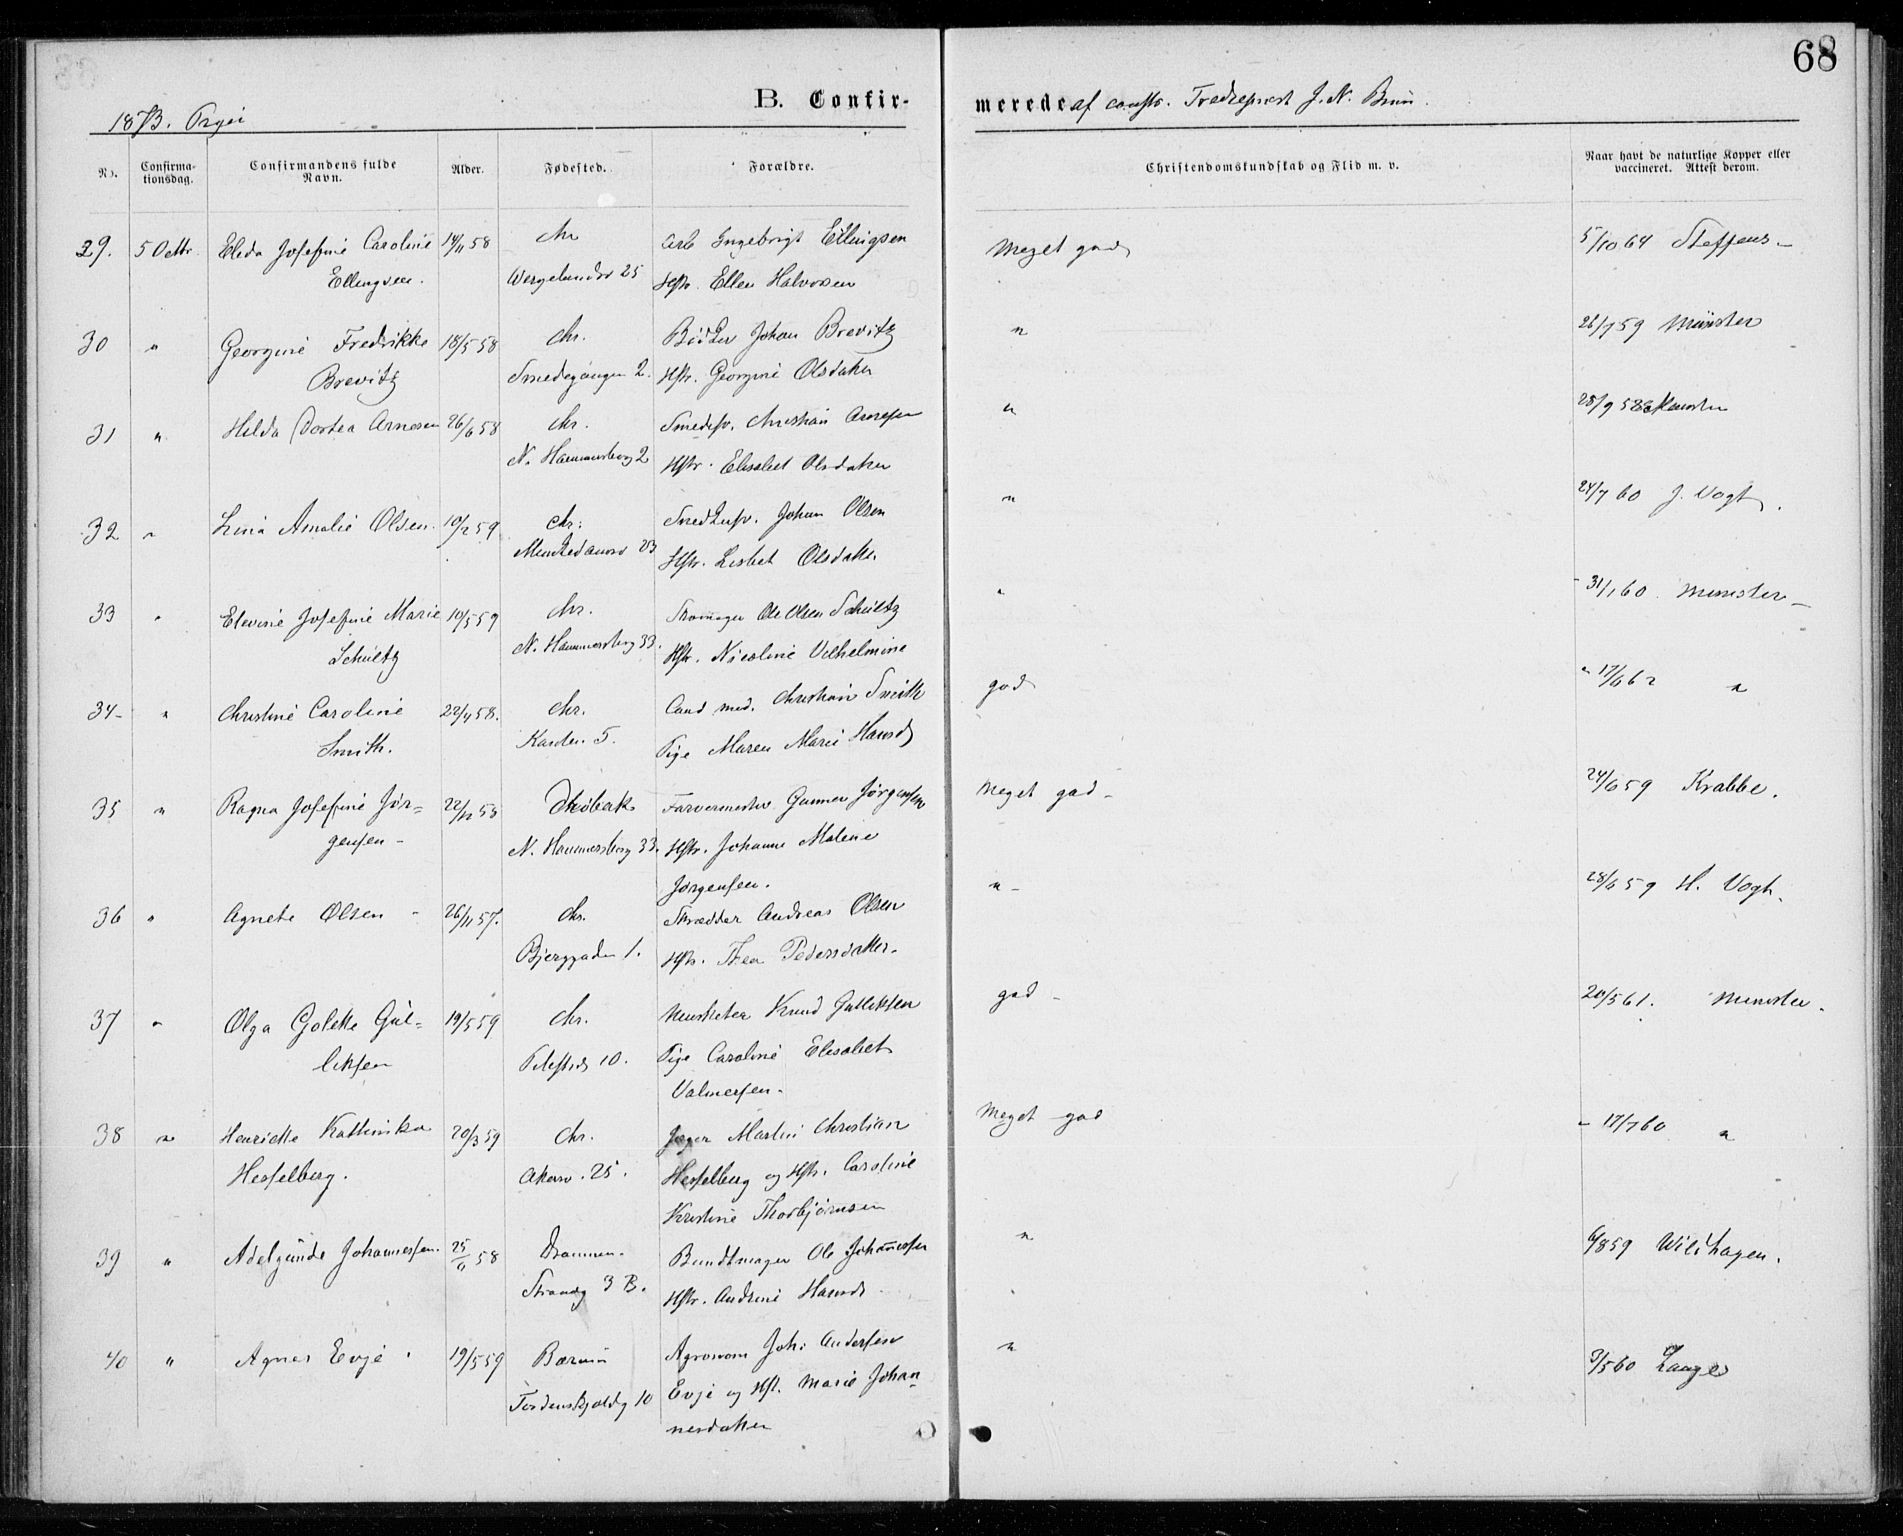 68
1873. Piger
B. Confirmerede af constr. Tredieprest J. N. Brun.
No. Confirmationsdag. Confirmandens fulde Navn. Alder. Fødested. Forældre. Christendomskundskab og Flid m. v. Naar havt de naturlige Kopper eller vaccineret. Attest derom.
29. 5 Octbr. Elida Josefine Caroline 14/11 58 Chr. Arb Ingebrigt Ellingsen Meget god 5/10 64 Steffens
Ellingsen. Wergelandsv 25 Hstr. Ellen Halvorsen
30 " Georgine Fredrikke 18/5 58 Chr. Bødker Johan Brevitz " 26/7 59 Münster
Brevitz Smedegangen 2. Hstr. Georgine Olsdater
31 " Hilda Dortea Arnesen 26/6 58 Chr. Smedsv. Christian Arnesen " 28/9 58 Münster
N. Hammersborg 2 Hstr. Elisabet Olsdater
32 " Lina Amalie Olsen. 10/2 59 Chr. Johan Olsen " 24/7 60 J. Vogt.
Munkedamsv 23 Hstr. Lisbet Olsdater.
33 " Elevine Josefine Marie 10/5 59 Chr. Skomager Ole Olsen Schültz " 31/1 60. Münster
Schültz N. Hammersborg 33. Hstr. Nicoline Vilhelmine
34 " Christine Caroline 22/11 58. Chr. Cand med. Christian Smith god 17/6 62 "
Smith. 5. Pige Maren Marie Hansd
35 " Ragna Josefine Jør- 22/12 58 Drøbak Farvermester Gunner Jørgensen Meget god 24/6 59 Krabbe.
gensen N. Hammersborg 33. Hstr. Johanne Malene
Jørgensen.
36 " Agnete Olsen 26/11 57. Chr. Skrædder Andreas Olsen " 28/6 59 H. Vogt.
Bjerggaden 1. Hstr. Thea Pedersdatter.
37 " Olga Golette Gul- 19/5 59 Chr. Musketer Knud Gulliksen god 20/5 61. Münster.
liksen Pilestræd 10. Pige Caroline Elisabet
Valmersen.
38 " Henriette Kathinka 20/3 59 Chr. Jæger Martin Christian Meget god 17/7 60 "
Hesselberg. Akersv. 25. Hesselberg og Hstr. Caroline
Kristine Thorbjørnsen
39 " Adelgunde Johannesen. 25/11 58 Drammen. Bundtmager Ole Johannesen " 6/8 59 Wildhagen.
Strandg 3 B. Hstr. Andrine Hansd.
40 " Agnes Evje 19/5 59 Bærum Agronom Joh. Andersen " 3/5 60 Lange
Tordenskjoldsg 10 Evje og Hst. Marie Johan-
nesdater